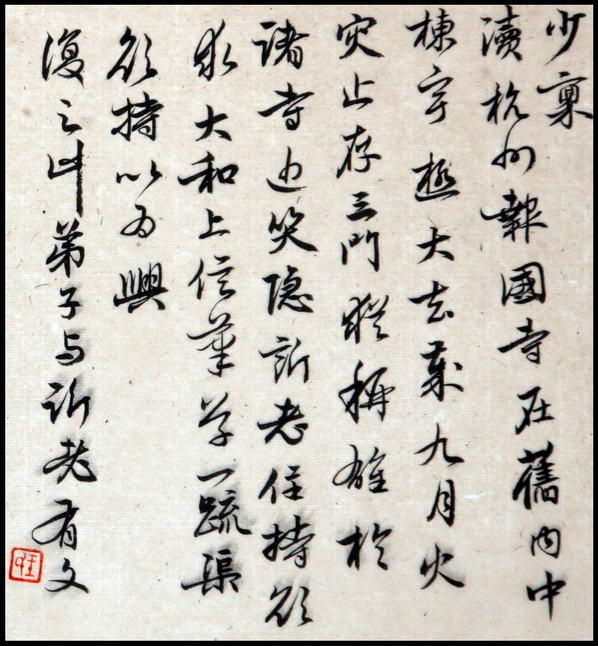 少稟
瀆杭州報國寺在舊內中
棟宇極大去歲九月火
灾止存三門猶稱雄於
諸寺近笑隱訢老住持欲
求大和上信筆草一疏渠
欲持以為興
復之計弟子与訢老有文